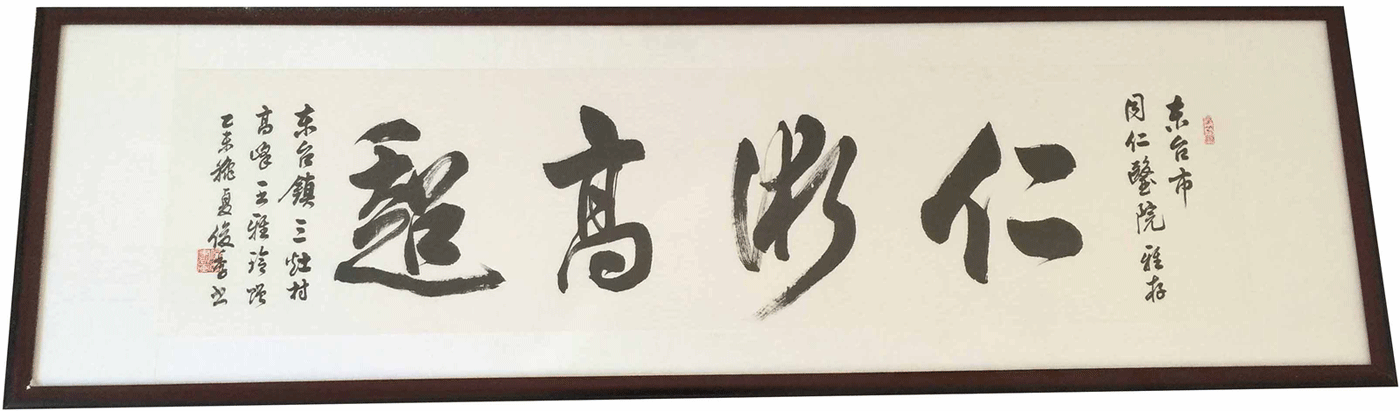 东台市
同仁醫院 雅存
仁術高超
东台鎮三灶村
高峰 王雅玲 赠
乙未秋夏俊书